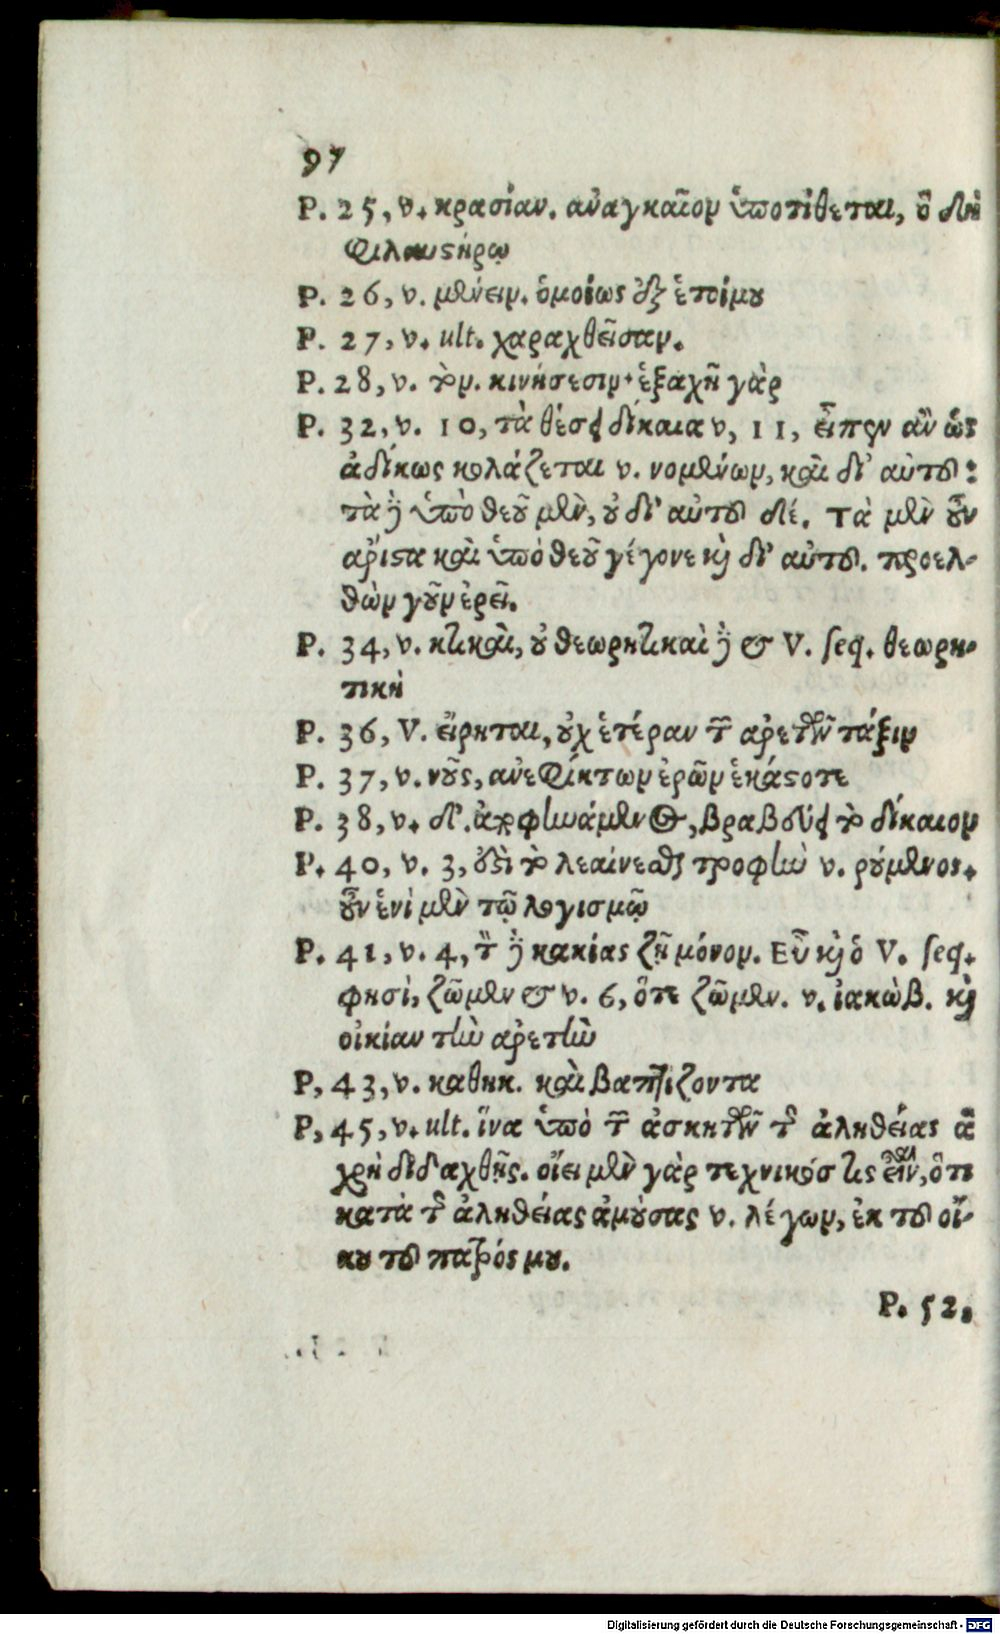 97
P. 25, v. κρασίαν. ἀναγκαῖον ὑποτίθεται, ὃ δὴ
Φιλαυϛήρῳ
P. 26, v. μθύειν. ὁμοίως ἐξ ἑτοίμου
P. 27, v. ult. χαραχθεῖσαν.
P. 28, v. τὸν. κινήσεσιν· ἑξαχῆ γὰρ
P. 32, v. 10, τὰ θέσει δίκαια v, 11, εἶπεν ἂν ὡς
ἀδίκως κολάζεται v. νομένων, καὶ δι' αὐτοῦ:
τὰ ἢ ὑπὸ θεοῦ μὲν, οὐ δι' αὐτοῦ δέ. Τὰ μὲν οὖν
ἄριϛα καὶ ὑπὸ θεοῦ γέγονε καὶ δι' αὐτοῦ. προελ-
θὼν γοῦν ἐρεῖ.
P. 34, v. κτικαὶ, οὐ θεωρητικαὶ δὲ & V. seq. θεωρη-
τικὴ
P. 36, V. εἴρηται, οὐχ ἑτέραν τῶν ἀρετῶν τάξιν
P. 37, v. νοῦς, ἀνεφίκτων ἐρῶν ἑκάϛοτε
P. 38, v. δι'. βραβεύει τὸ δίκαιον
P. 40, v. 3, οὐδὲ τὸ λεαίνεσθαι τροφὴν v. ρύμενος.
οὖν ἑνὶ μὲν τῷ λογισμῷ
P. 41, v. 4, τὸν δὲ κακίας ζῆ μόνον. Εὖ καὶ ὁ V. seq.
φησὶ, ζῶμεν & v. 6, ὅτε ζῶμεν. v. ἰακὼβ. καὶ
οἰκίαν τὴν ἀρετὴν
P, 43, v. καθηκ. καὶ βαπτίζοντα
P, 45, v. ult. ἵνα ὑπὸ τῶν ἀσκητῶν τῆς ἀληθείας ἃ
χρὴ διδαχθῇς. οἴει μὲν γὰρ τεχνικός τις εἶναι, ὅτι
κατὰ τῆς ἀληθείας ἀμούσας v. λέγων, ἐκ τοῦ οἴ-
κου τοῦ πατρός μου.
P. 52,
Digitalisierung gefördert durch die Deutsche Forschungsgemeinschaft - DFG